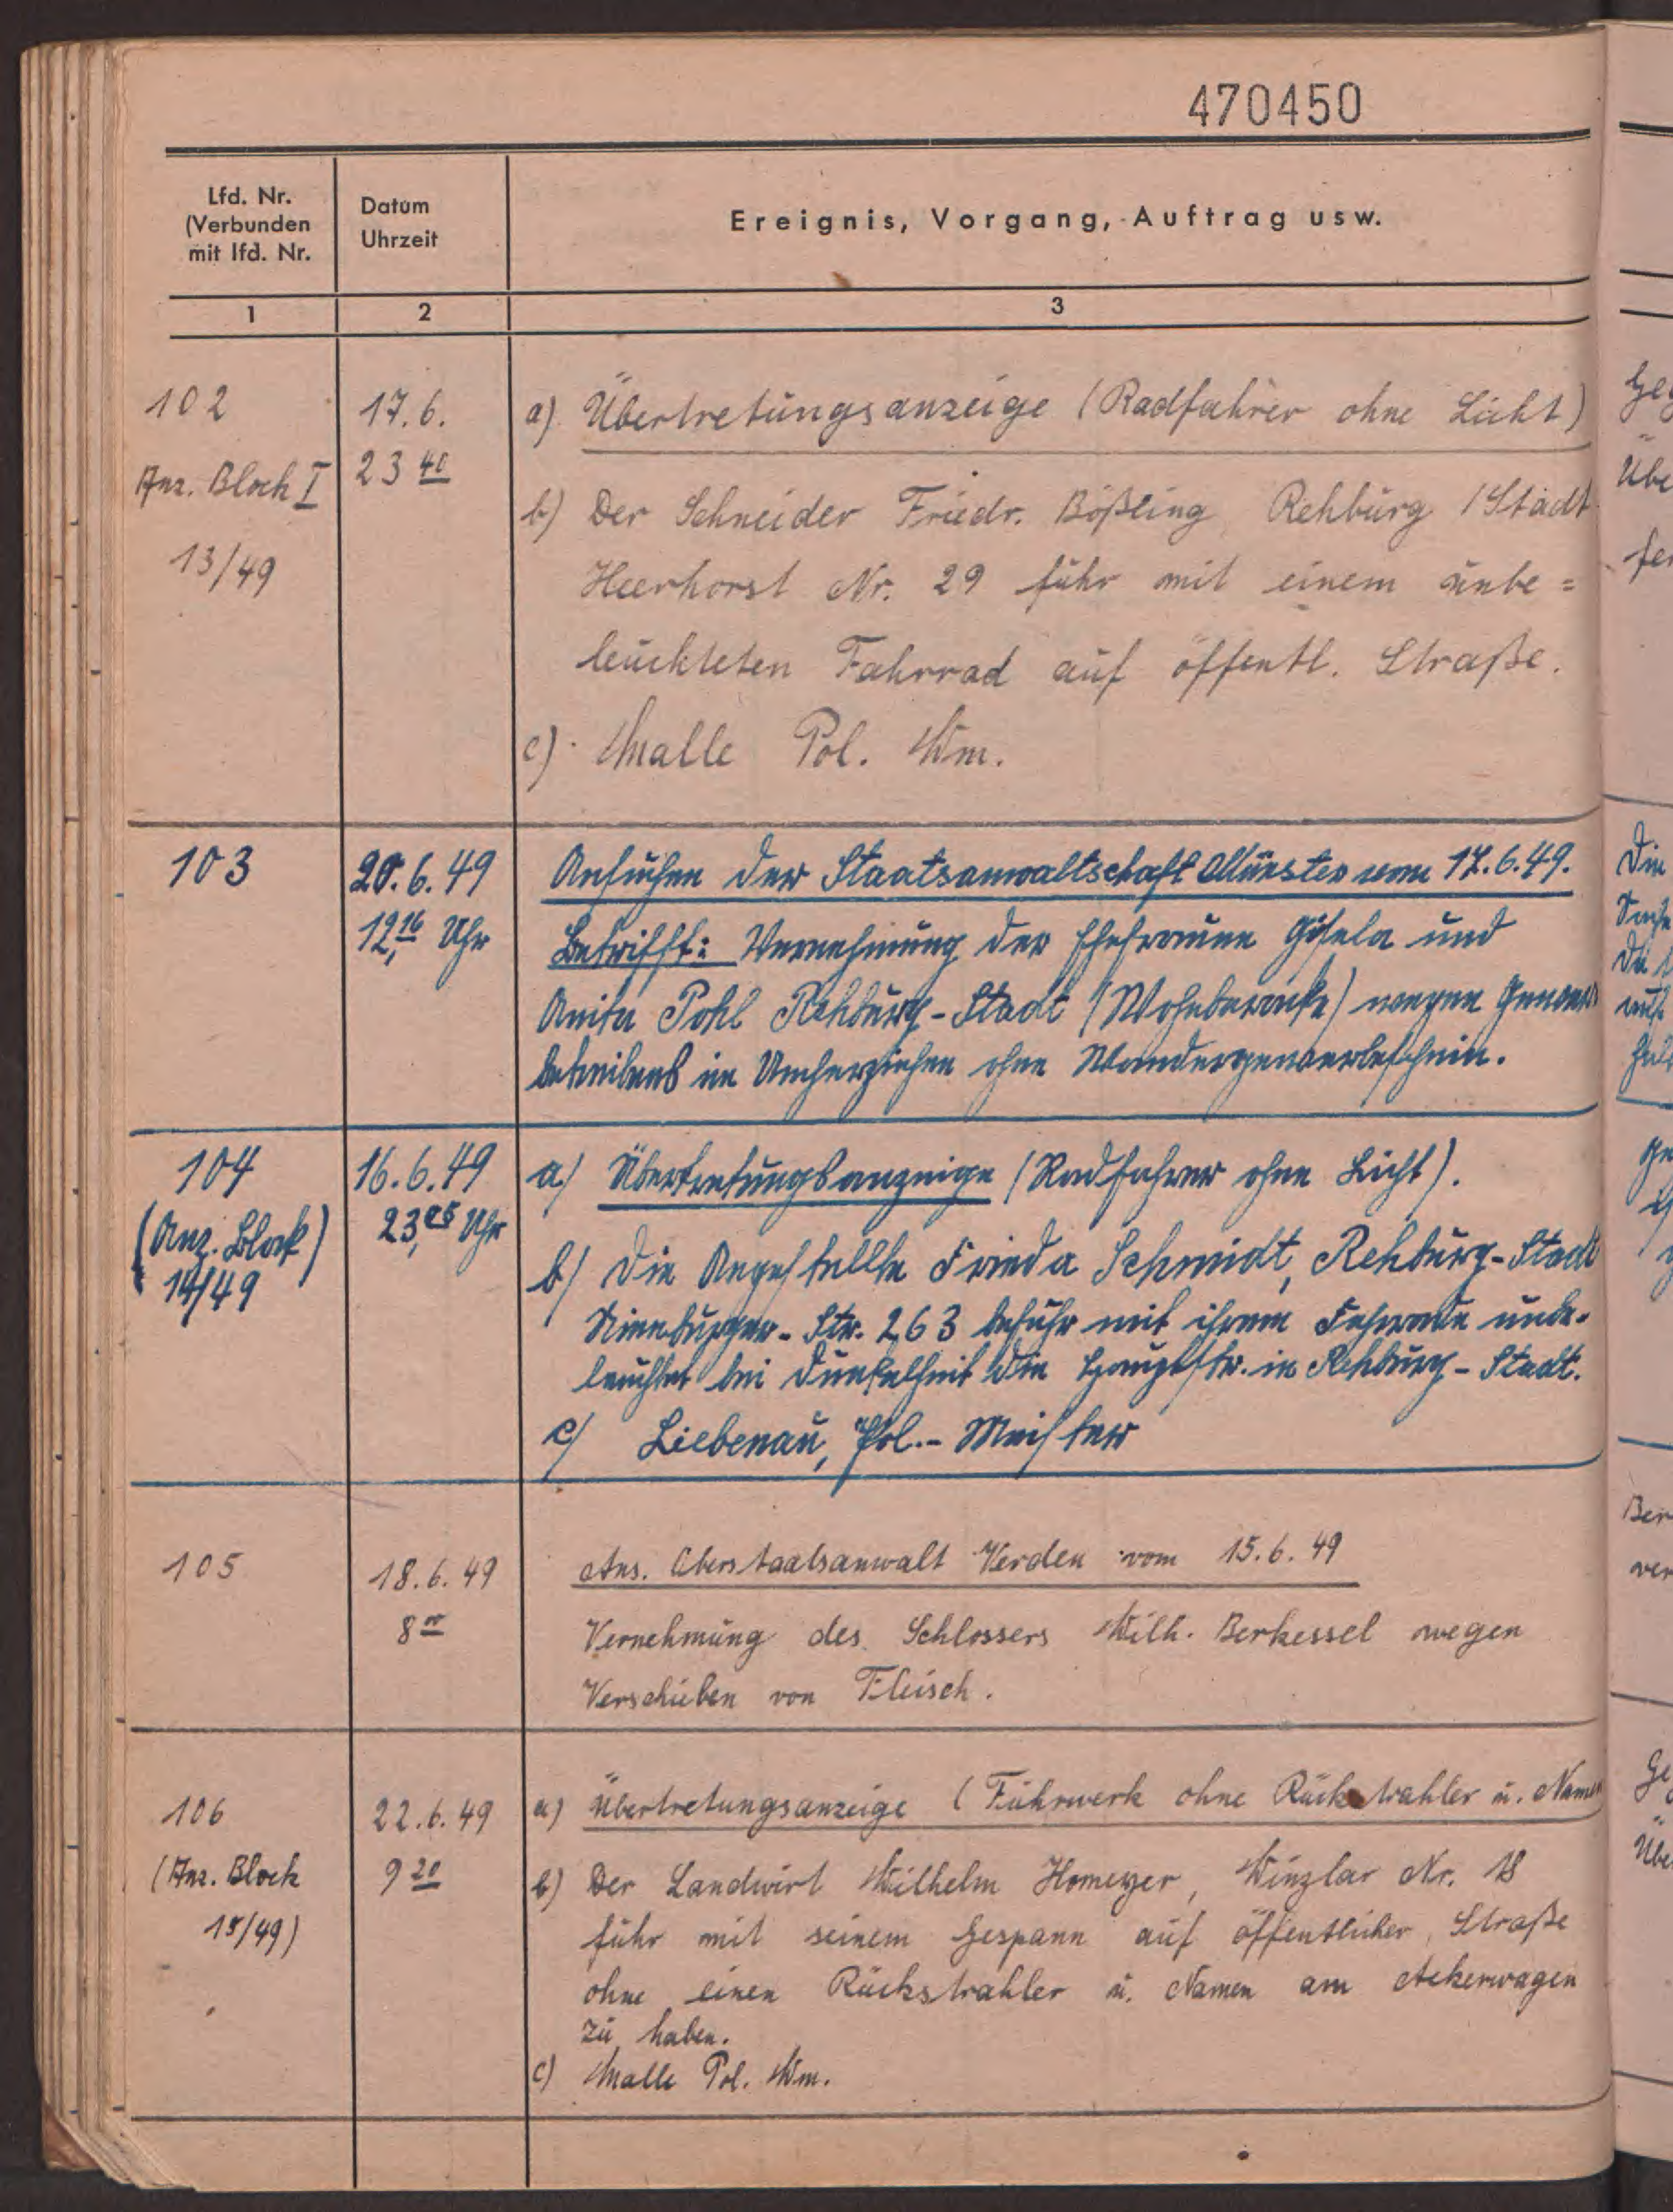 470450
Lfd. Nr.
(Verbunden
mit lfd. Nr.
Datum
Uhrzeit
Ereignis, Vorgang, Auftrag usw.
1
2
3
102
Anz. Block I
13/49
17. 6.
23 40
a) Übertretungsanzeige (Radfahrer ohne Licht)
b) Der Schneider Friedr. Bößling Rehburg / Stadt
Heerhorst Nr. 29 fuhr mit einem unbe=
leuchteten Fahrrad auf öffentl. Straße.
c) Malle Pol. Wm.
103
20. 6. 49
12,16 Uhr
Ansuchen der Staatsanwaltschaft Münster vom 17. 6. 49.
Betrifft: Vernehmung der Ehefrauen Gisela und
Anita Pohl Rehburg-Stadt (Wohnbaracke) wegen Gewerbe
betreibens im Umherziehen ohne Wandergewerbeschein.
104
(Anz. Block)
14/49
16. 6. 49
23,05 Uhr
a/ Übertretungsanzeige (Radfahrer ohne Licht).
b/ Die Angestellte Frieda Schmidt, Rehburg-Stadt
Nienburger-Str. 263 befuhr mit ihrem Fahrrade unbe-
leuchtet bei Dunkelheit die Hauptstr. in Rehburg-Stadt.
c/ Liebenau, Pol.-Meister
105
18. 6. 49
8 00
Ans. Oberstaatsanwalt Verden vom 15. 6. 49
Vernehmung des Schlossers Wilh. Berkessel wegen
Verschieben von Fleisch.
106
(Anz. Block
15/49)
22. 6. 49
9 20
a) Übertretungsanzeige (Fuhrwerk ohne Rückstrahler u. Namen
b) Der Landwirt Wilhelm Homeyer, Winzlar Nr. 18
fuhr mit seinem Gespann auf öffentlicher Straße
ohne einen Rückstrahler u. Namen am Ackerwagen
zu haben.
c) Malle Pol. Wm.